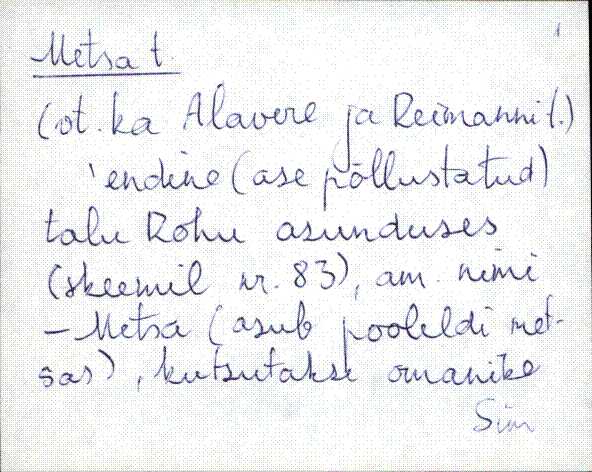 1
Metsa t.
(vt. ka Alavere ja Reimanni t.)
'endine (ase põllustatud)
talu Rohu asunduses
(skeemil nr. 83), am. nimi
- Metsa (asub pooleldi met-
sas), kutsutakse omanike
Sim